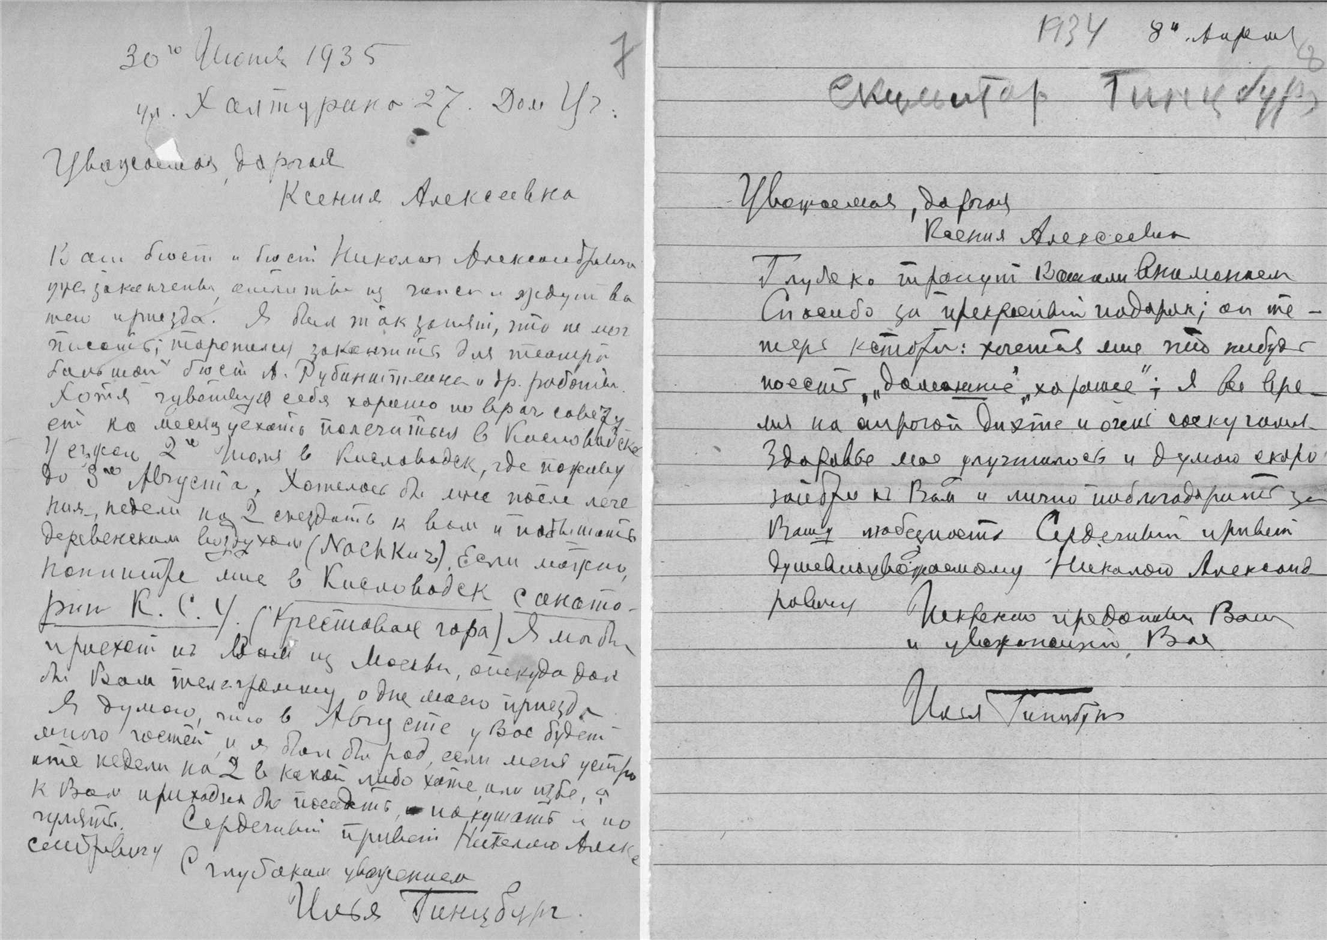 30го Июня 1935
7
ул. Халтурина 27. Дом Уч.
Уважаемая, дорогая
Ксения Алексеевна
Ваш бюст и бюст Николая Александровича
уже закончены, отлиты из гипса и ждут Ва
шего приезда. Я был так занят, что не мог
писать; торопился закончить для театра
большой бюст А. Рубинштейна и др. работы.
Хотя чувствую себя хорошо но врач совету
ет на месяц уехать полечиться в Кисловодске
Уезжаю 2го Июля в Кисловодск, где поживу
до 3го Августа. Хотелось бы мне после лече
ния, недели на 2 съездить к вам и подышать
деревенским воздухом (Nachkur). Если можно,
напишите мне в Кисловодск санато-
рии К. С. У. (Крестовая гора) Я мог бы
приехать к Вам из Москвы, откуда дал
бы Вам телеграмму о дне моего приезда
Я думаю, что в Августе у Вас будет
много гостей, и я был бы рад, если меня устро
ите недели на 2 в какой либо хате, или избе, а
к Вам приходил бы посидеть, и покушать и по
гулять. Сердечный привет Николаю Алекс
сандровичу
С глубоким уважением
Илья Гинцбург.
1934 8го Апреля
8
Скульптор Гинцбург
Уважаемая, дорогая
Ксения Алексеевна
Глубоко тронут Вашим вниманием
Спасибо за прекрасный подарок; он те-
перь кстати: хочется мне что нибудь
поесть „домашнее", „хорошее"; я все вре-
мя на строгой диэте и очень соскучился
Здоровье мое улучшилось и думаю скоро
зайти к Вам и лично поблагодарить за
Вашу любезность Сердечный привет
душевноуважаемому Николаю Александ
ровичу
Искренно преданный Вам
и уважающий Вас
Илья Гинцбург